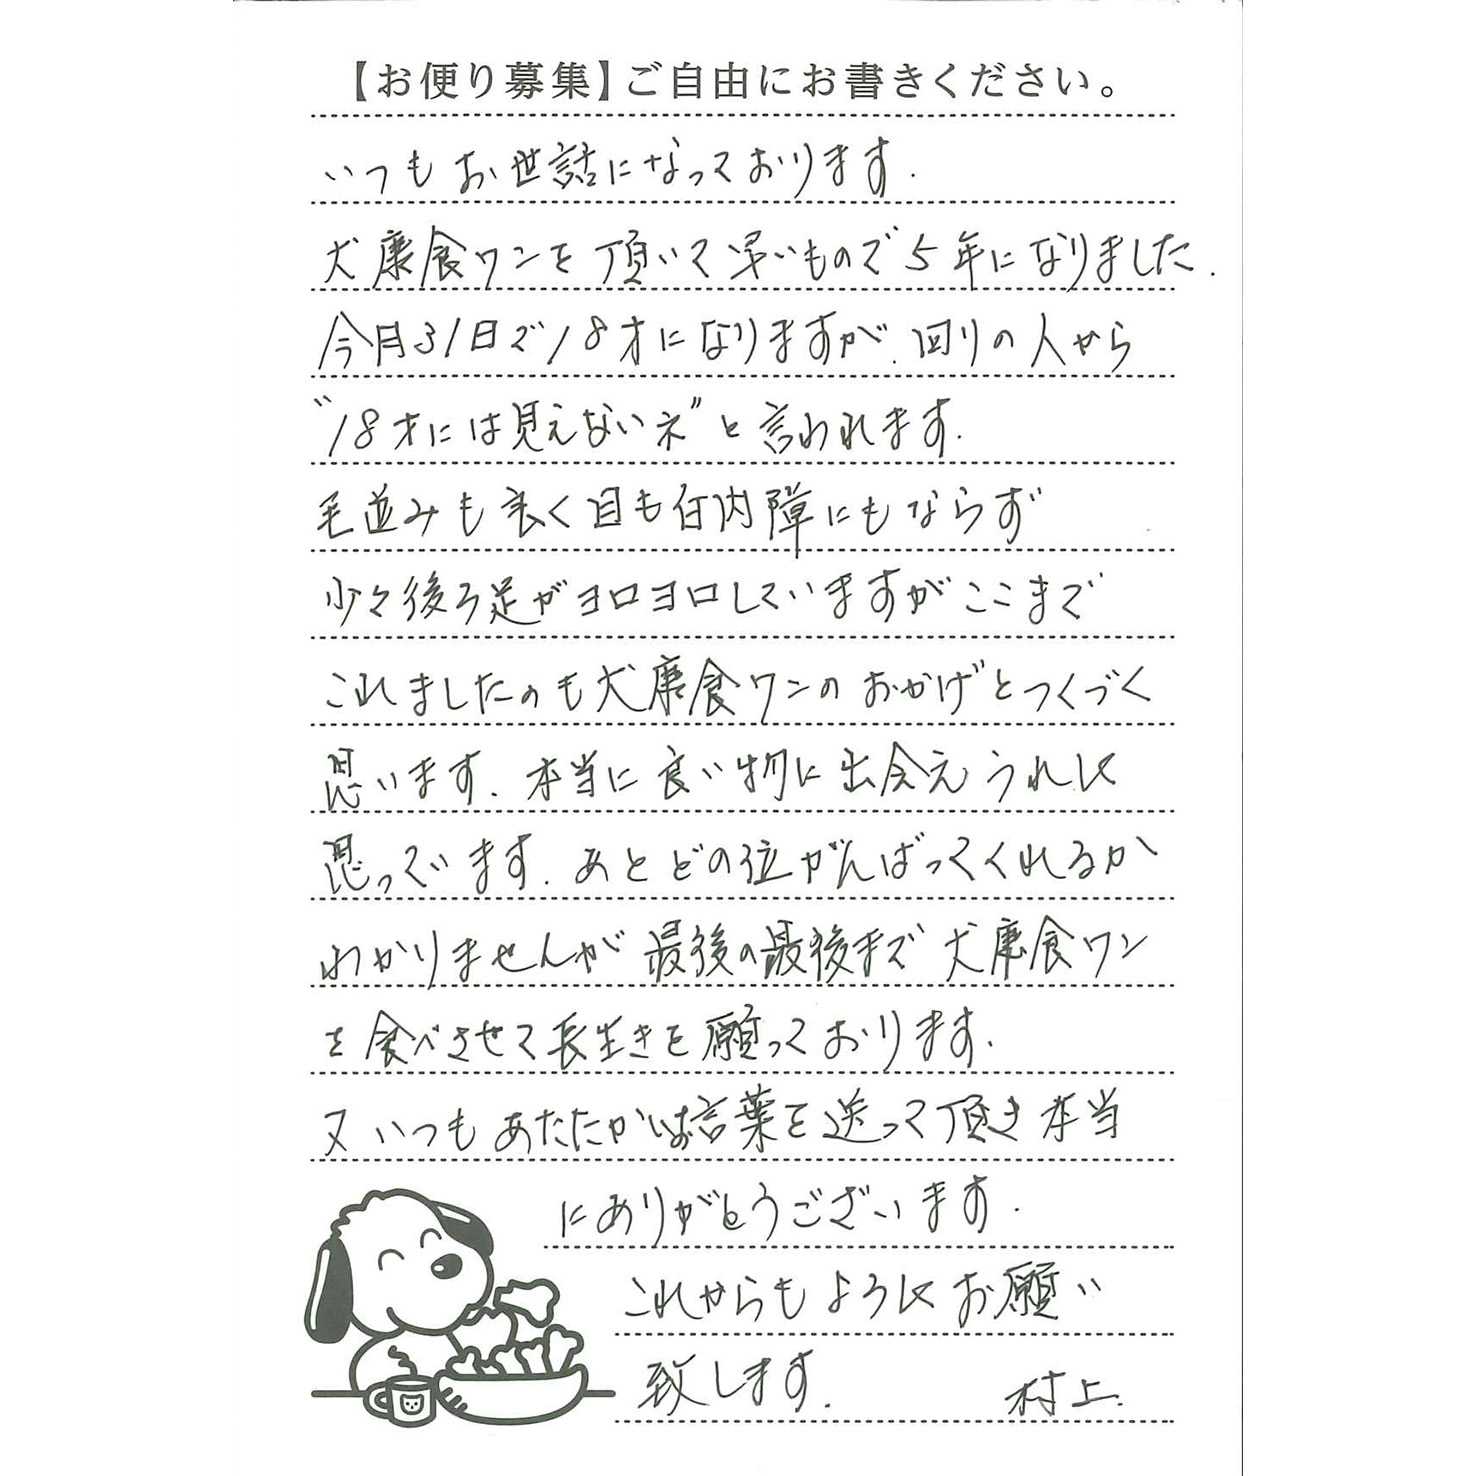 【お便り募集】ご自由にお書きください。
いつもお世話になっております.
犬康食ワンを頂いて早いもので5年になりました.
今月31日で18才になりますが.回りの人から
“18才には見えないネ”と言われます.
毛並みも良く目も白内障にもならず
少々後ろ足がヨロヨロしていますがここまで
これましたのも犬康食ワンのおかげとつくづく
思います.本当に良い物に出会えうれしく
思っています.あとどの位がんばってくれるか
わかりませんが最後の最後まで犬康食ワン
を食べさせて長生きを願っております.
又いつもあたたかいお言葉を送って頂き本当
にありがとうございます.
これからもよろしくお願い
致します.　村上.